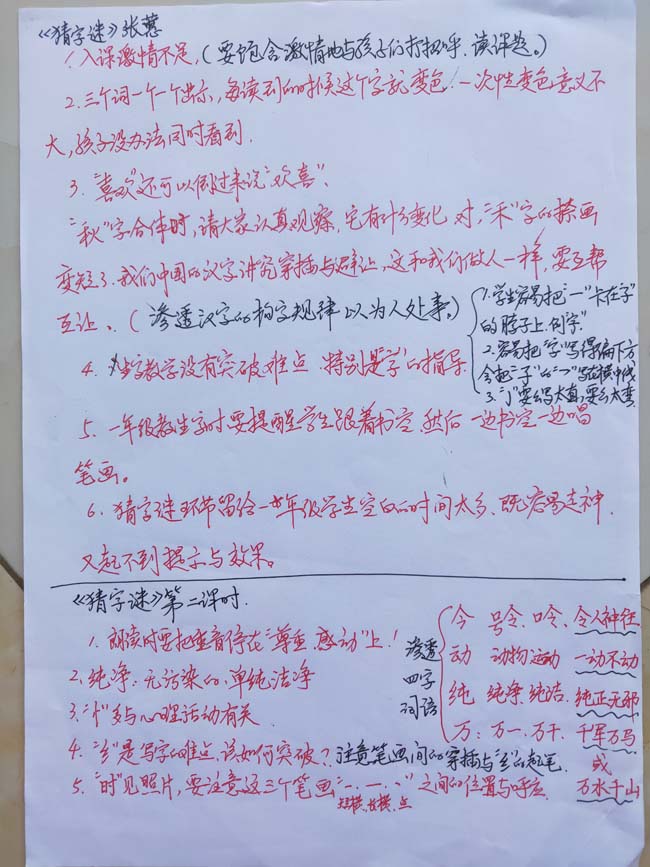 《猜字谜》张慧
1. 入课激情不足,(要饱含激情地与孩子们打招呼、读课题。)
2. 三个词一个一个出示,每读到的时候这个字就变色!一次性变色意义不
大,孩子没办法同时看到.
3. “喜欢”还可以倒过来说“欢喜”、
“秋”字合体时,请大家认真观察,它有什么变化 对,“禾”字的捺画
变短了.我们中国的汉字讲究穿插与避让,这和我们做人一样,要互帮
互让、(渗透汉字的构字规律以为人处事。)
4. 生字教学没有突破难点.特别是“字”的指导.
1. 学生容易把“一”卡在“子”
的脖子上.例“字”.
2. 容易把“字”写得偏下方
会把“子”的“一”写在横中线
3. “亅”要么写太直,要么太弯.
5. 一年级教生字时要提醒学生跟着书空.然后一边书空一边唱
笔画。
6. 猜字谜环节留给一年级学生空白的时间太多、既容易走神
又起不到提示与效果。
《猜字谜》第二课时.
1. 朗读时要把重音停在“尊重、感动”上!
2. 纯净:无污染的.单纯洁净
3. “忄”多与心理活动有关.
4. “纟”是写字的难点.该如何突破?注意笔画间的穿插与“纟”的起笔.
5. “时”见照片,要注意这三个笔画“一、一、丶”之间的位置与呼应
短横、长横、点
渗透
四字
词语
令 号令、口令、令人神往
动 动物 运动 一动不动
纯 纯净、纯洁、纯正无邪
万:万一、万千、千军万马
或
万水千山